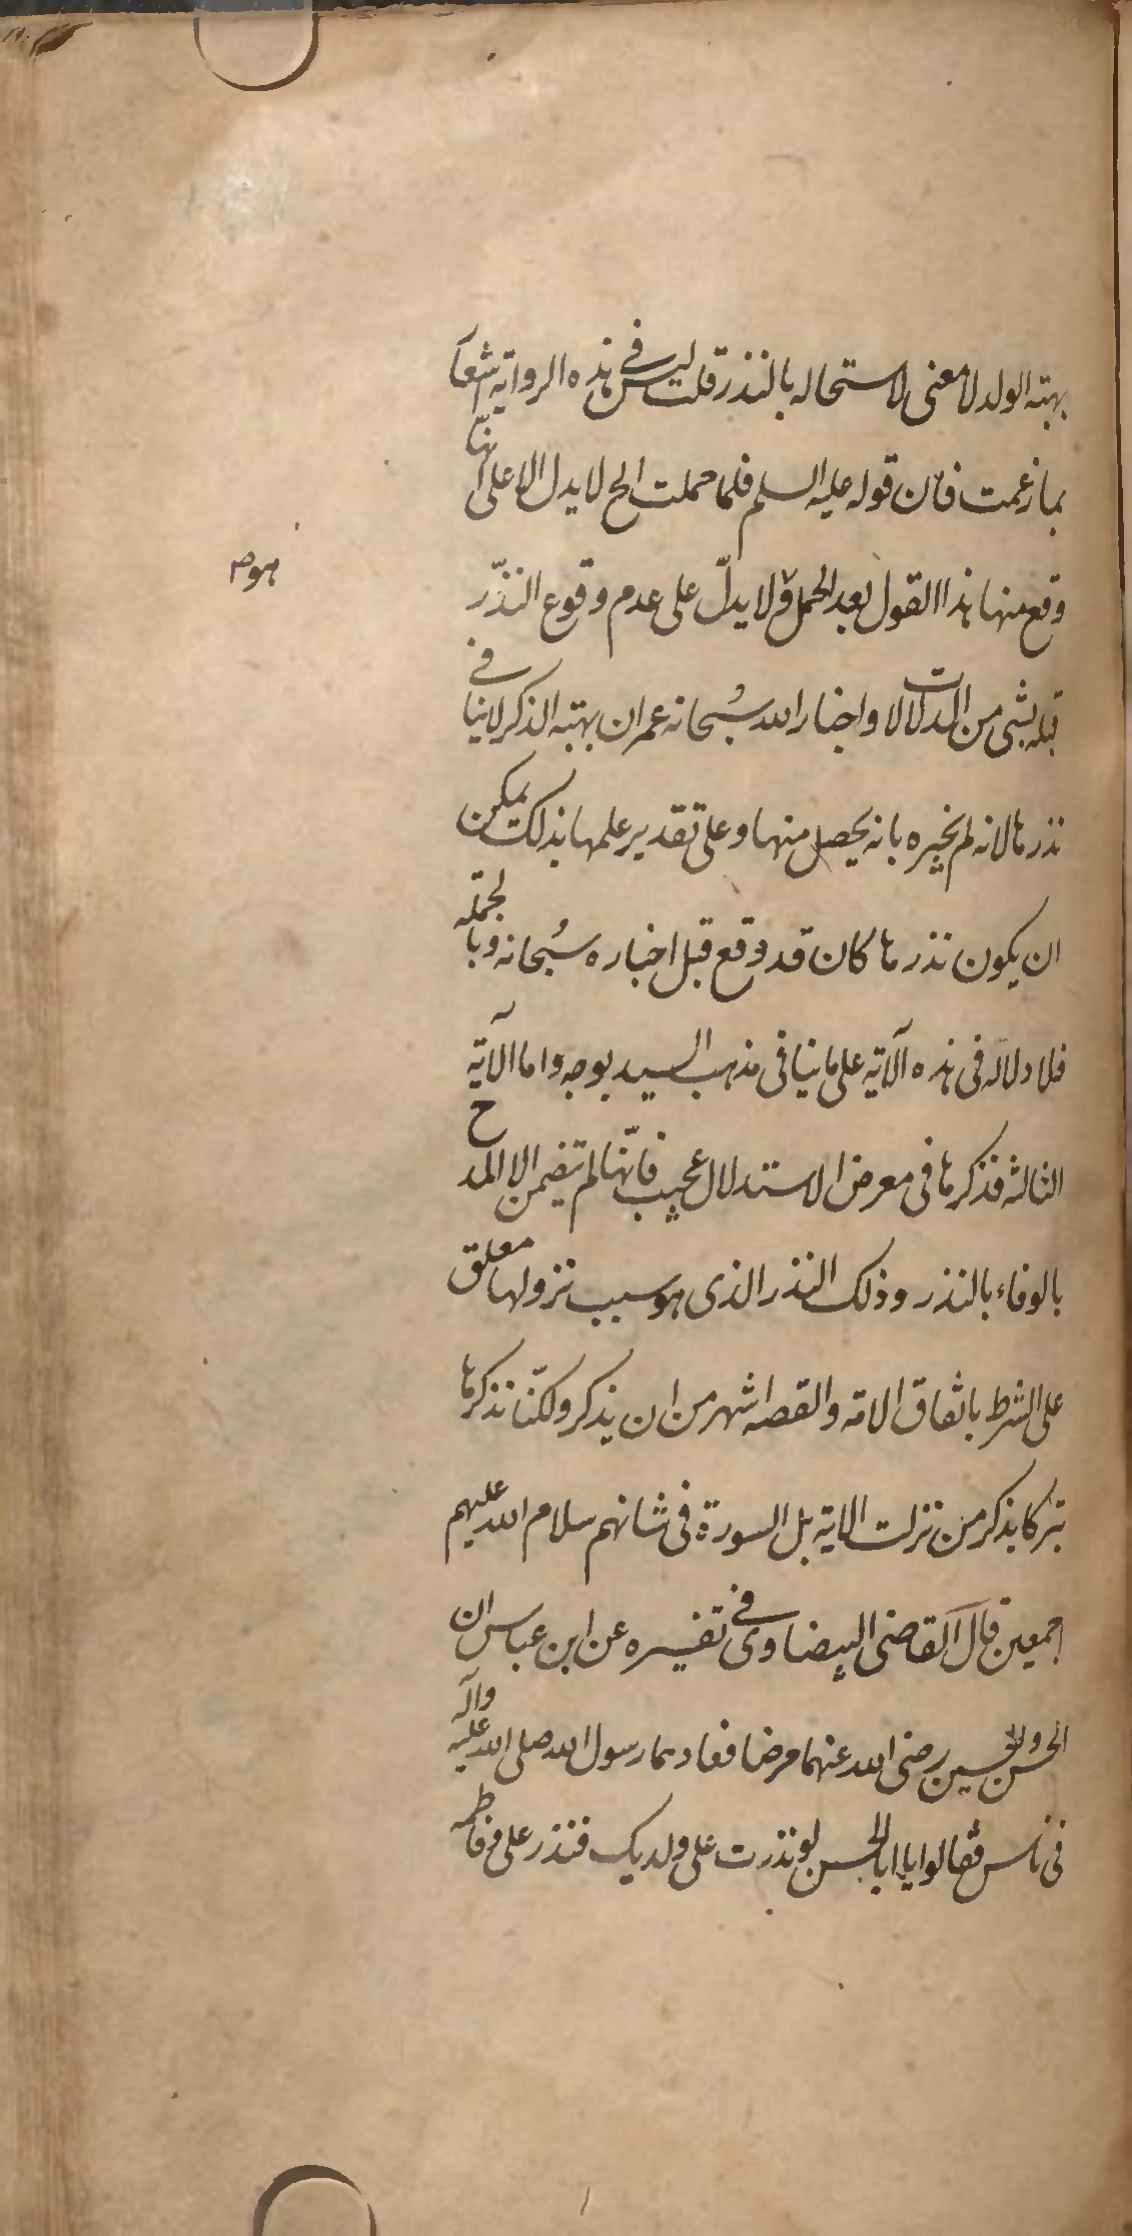 بهبته الولد لا معنى لاستحاله بالنذر قلت ليس في هذه الرواية اشعار
بما زعمت فان قوله عليه السلم فلما حملت الخ لا يدل الا على انها
وقع منها هذا القول بعد الحمل ولا يدلّ على عدم وقوع النذر
هو م
قبله بشئ من الدلالات واخبار الله سُبحانه عمران بهبته الذكر لا ينافي
نذرها لانه لم يخبره بانه يحصل منها وعلى تقدير علمها بذلك يمكن
ان يكون نذرها كان قد وقع قبل اخباره سُبحانه وبالجمله
فلا دلاله فى هذه الآية على ما ينافى مذهب السيد بوجه واما الآية
الثالثه فذكرها فى معرض الاستدلال عجيب فانّها لم تتضمن الا المدح
بالوفاء بالنذر وذلك النذر الذى هو سبب نزولها معلق
على الشرط باتفاق الامة والقصه اشهر من ان يذكر ولكنّا نذكرها
تبركا بذكر من نزلت الاية بل السورة فى شانهم سلام الله عليهم
اجمعين قال القاضى البيضاوى في تفسيره عن ابن عباس ان
الحسن والحسين رضى الله عنهما مرضا فعادهما رسول الله صلى الله عليه واله
فى ناس فقالوا يا ابا الحسن لو نذرت على ولديك فنذر على وفاطمه